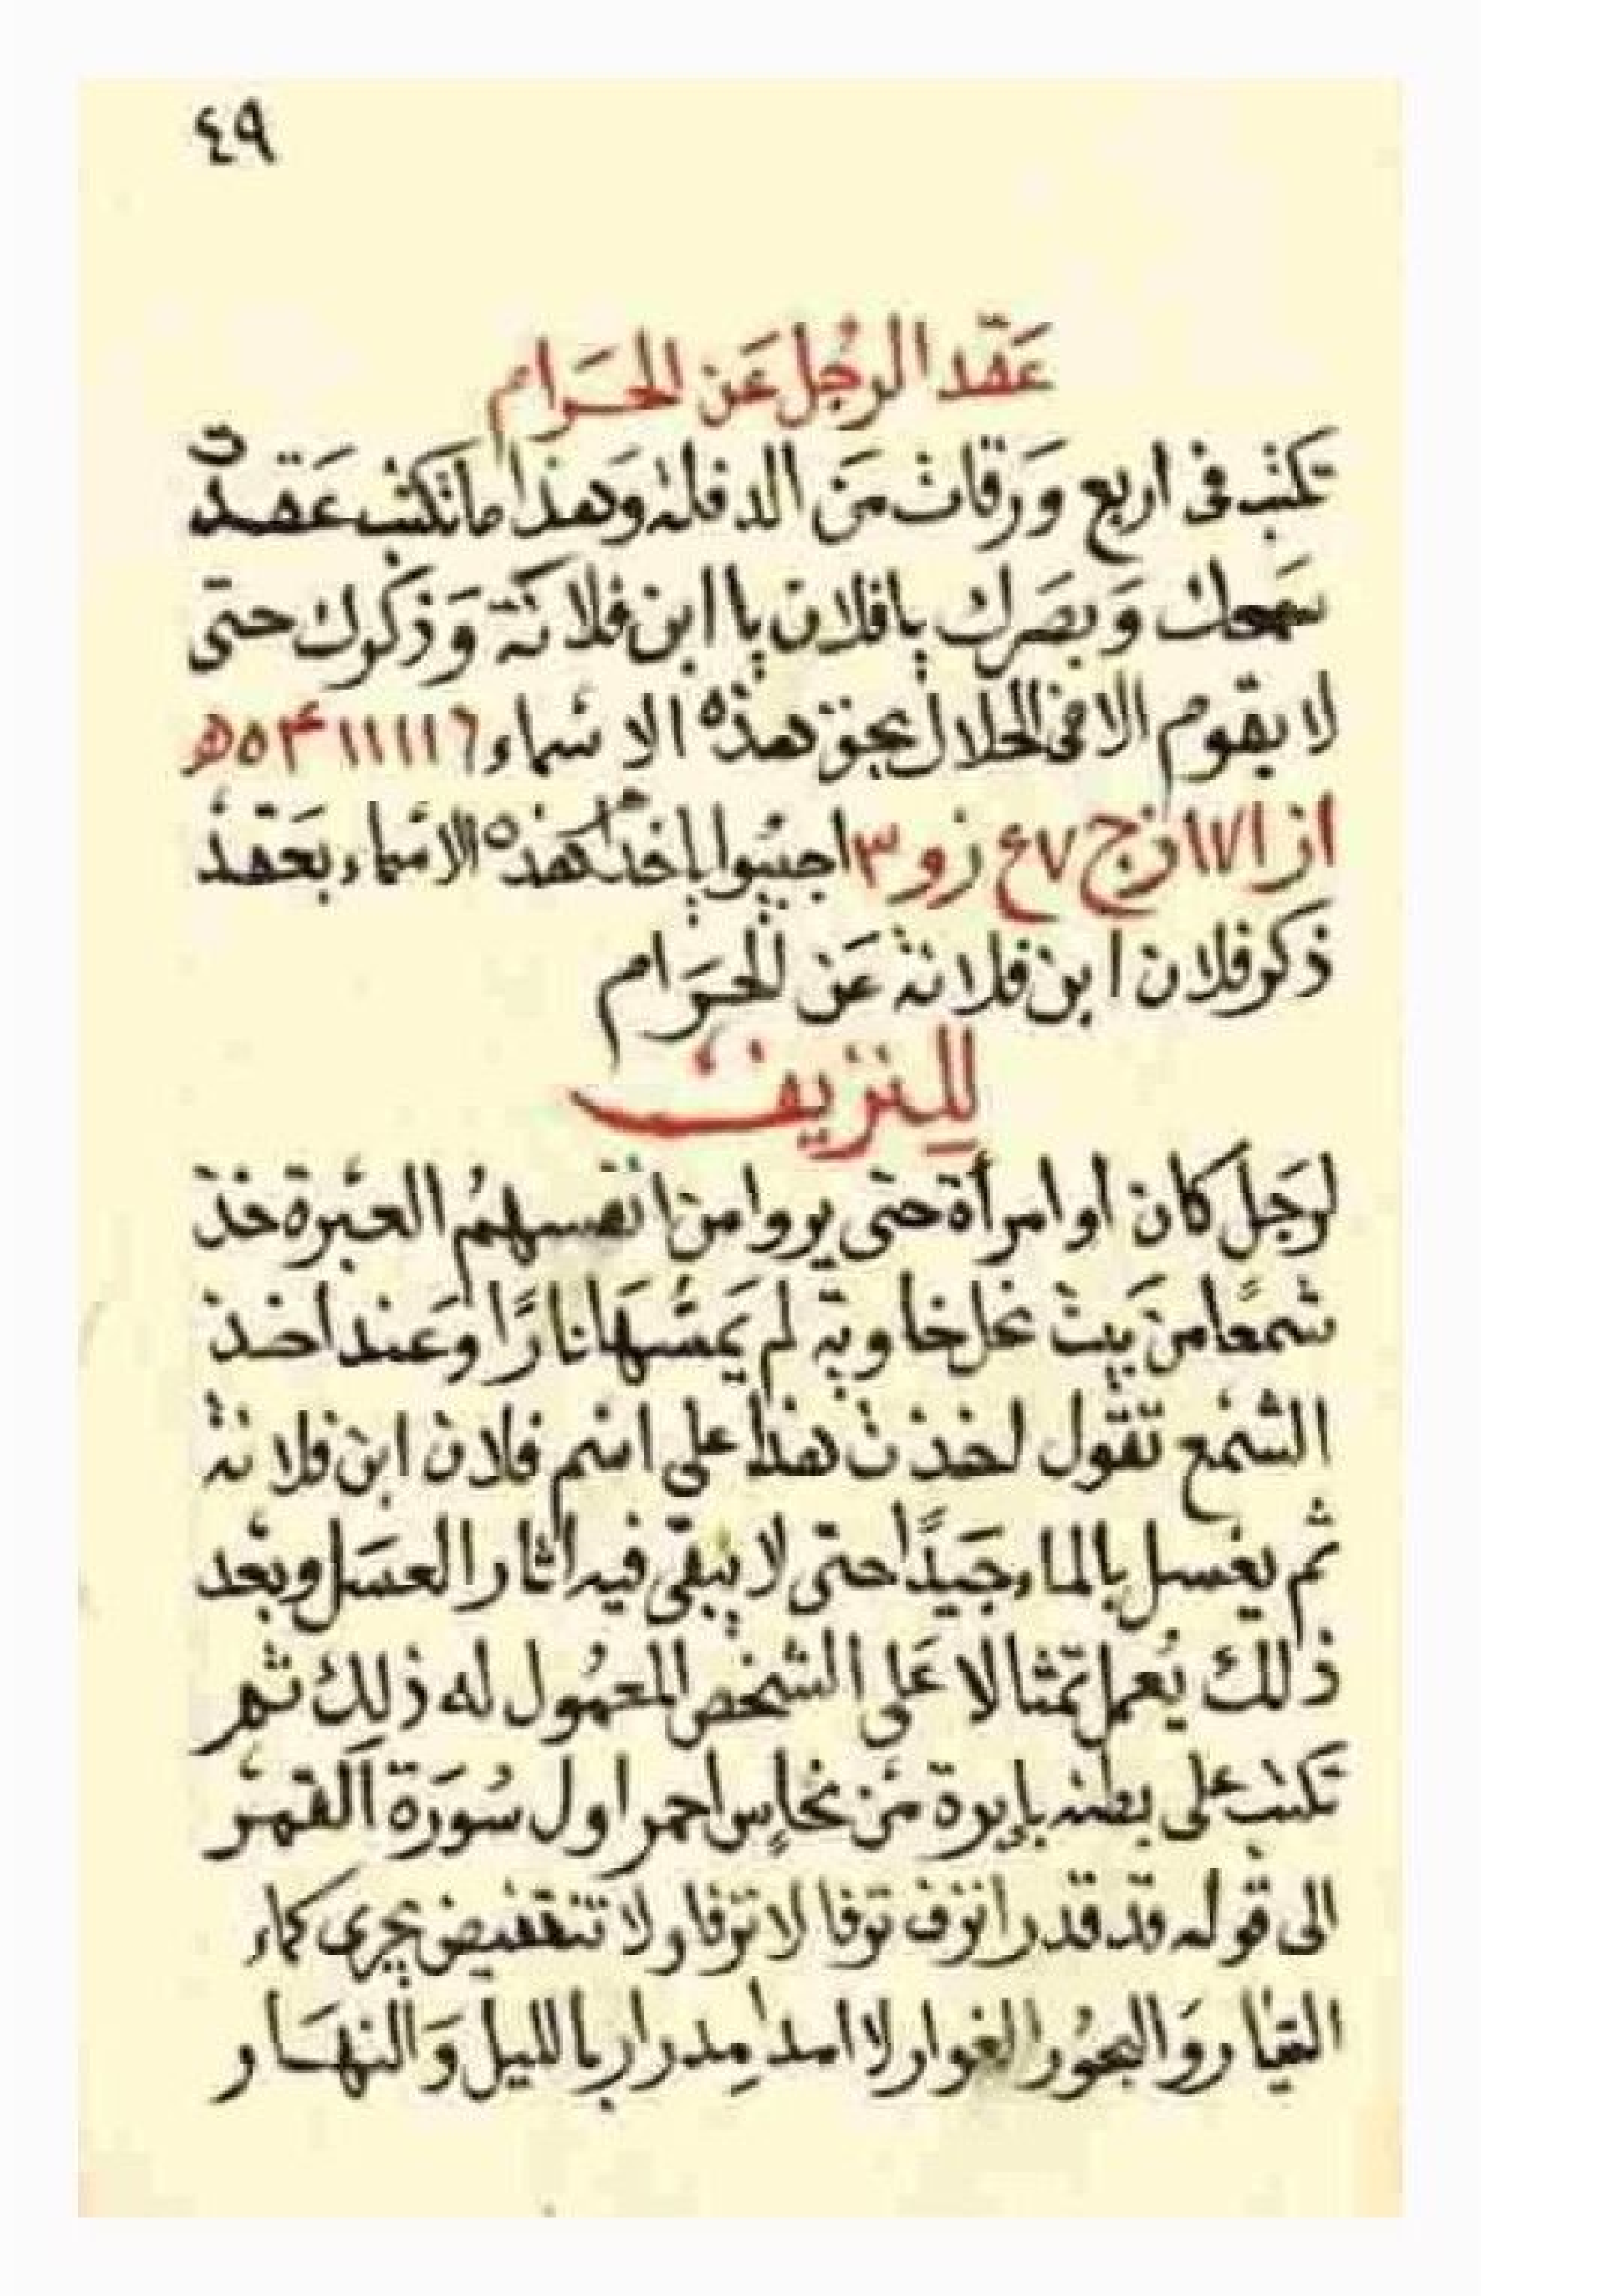 ٤٩
عَقد الرجُل عَن الحَرام
تكتب فى اربع وَرقات مَن الدفله وَهذا ما تكتب عَقدتُ
سَمعك وَبصَرك يا فلان يا ابن فلانَة وَذكرك حتى
لا يقوم الا فى الحلال بحق هذه الاسماء ١١١١١٦ ٤ ٥ ﻫ
از ١٧١١ زج ٧ع زو ٣ اجيبوا ياخدام هذه الاسماء بعَقد
ذكر فلان ابن فلانة عَن الحَرام
للنزيف
لرَجل كان او امرأة حتى يروا من انفسهمُ العبْرة خذ
شمعًا من بَيت نحل خاوية لم يَمَسّهَا نارًا وعَند اخذ
الشمع تقول اخذت هذا على اسم فلان ابن فلانة
ثم يغسل بالماء جَيدًا حتى لا يبقى فيه اثار العسَل وبعْد
ذلك يُعمل تمثالا عَلى الشخص المعمُول له ذلِك ثم
تكتب على بطنه بإبرة مَن نحاس احمر اول سُورَة القمر
الى قوله قد قدر انزف نزفا لا نزفا ولا تنقيض يجرى كماء
التيار وَالبحُور الغوار لا امد مِدرار باالليل وَالنهَار